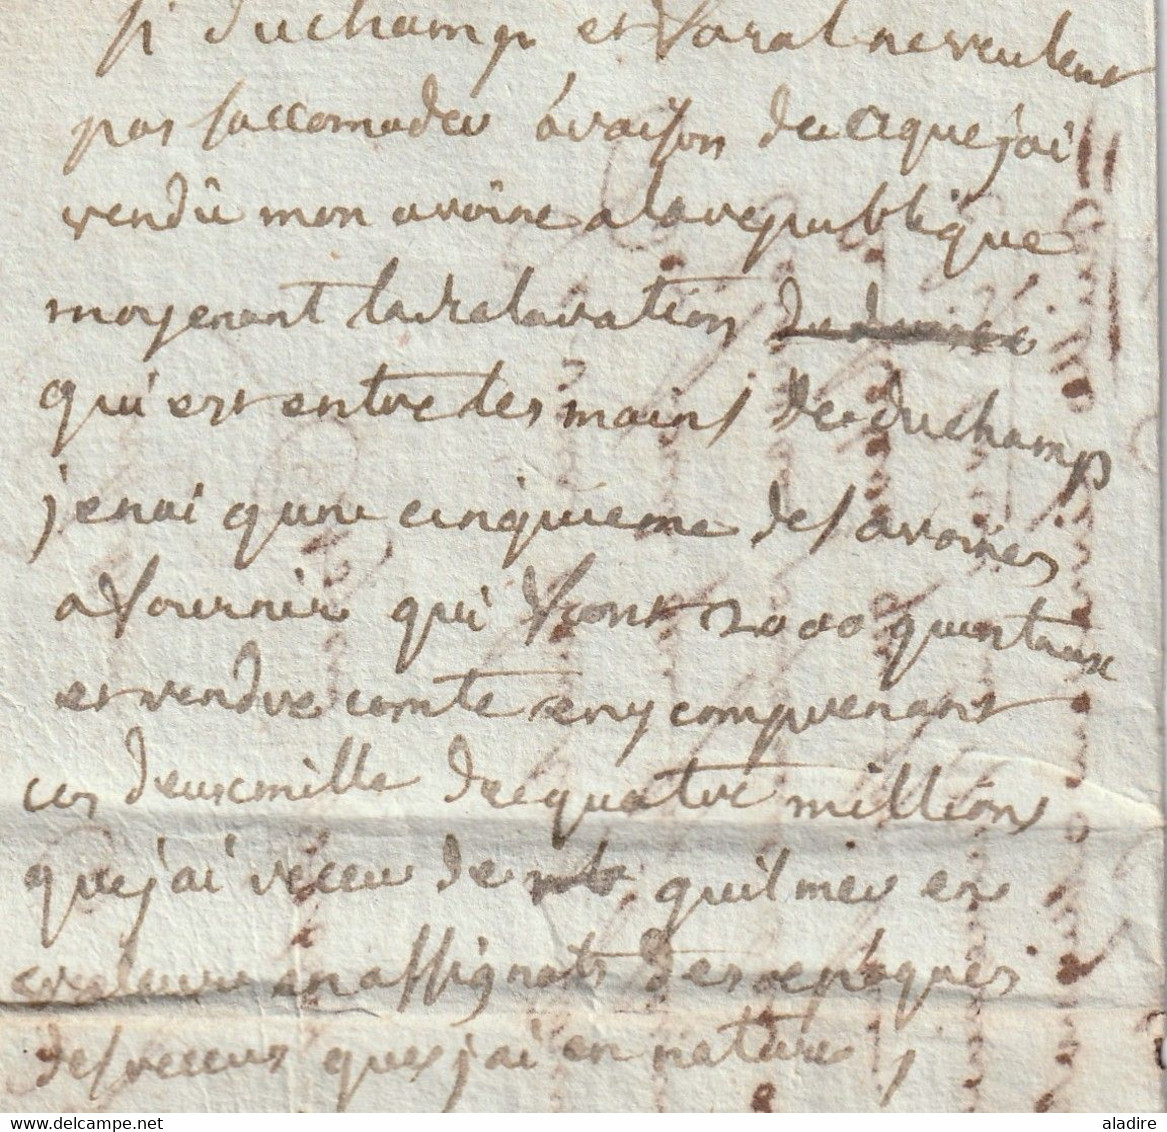 si duchamp et Saral ne veulent
pas saccomoder à raison de ce que jai
vendû mon avoine a la republique
moyenant la declaration
qui est entre les mains de duchamp
je nai quun cinquieme des avoines
a fournir qui sont 2000 quintaux
et rendre comte en y comprenant
ces deux mille de quatre million
que jai receu de quil met en
en assignats des epoques
des receus que jai en nature,
aladire